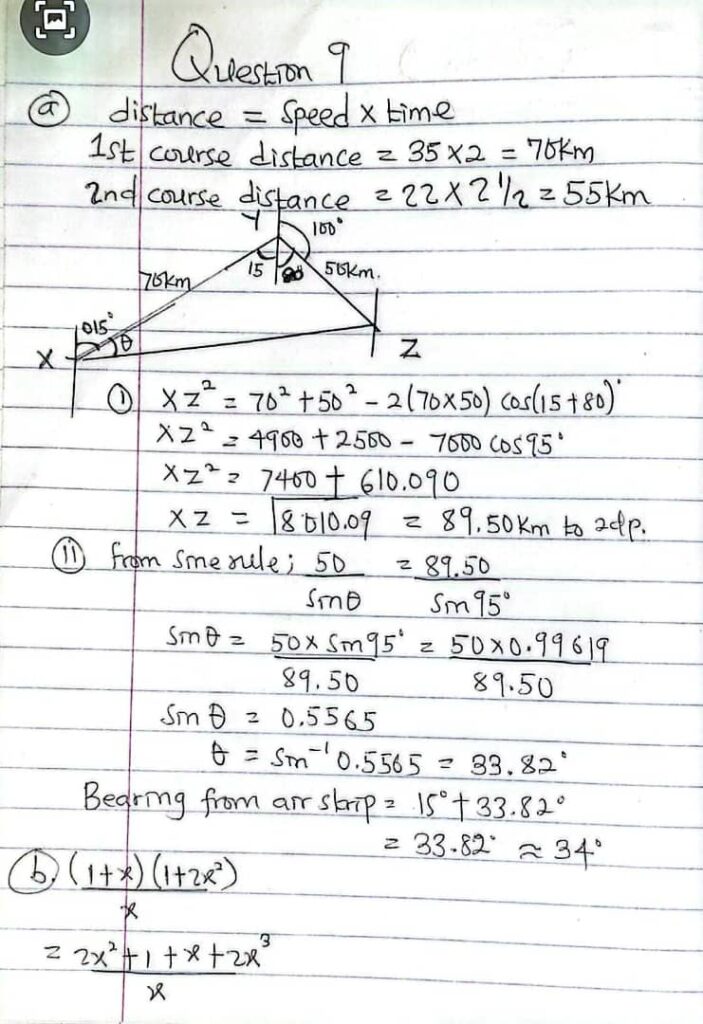 Question 9
(a) distance = Speed x time
1st course distance = 35 x 2 = 70km
2nd course distance = 22 x 2 1/2 = 55km
Y 100°
70km 15 80 50km.
015° θ
X Z
(i) XZ² = 70² + 50² - 2(70x50) cos(15+80)°
XZ² = 4900 + 2500 - 7000 cos95°
XZ² = 7400 + 610.090
XZ = √8010.09 = 89.50km to 2dp.
(ii) from Sine rule; 50 = 89.50
Sinθ Sin95°
Sinθ = 50 x Sin95° = 50x0.99619
89.50 89.50
Sin θ = 0.5565
θ = Sin⁻¹ 0.5565 = 33.82°
Bearing from air strip = 15° + 33.82°
= 33.82° ≈ 34°
(b). (1+x)(1+2x²)
x
= 2x² + 1 + x + 2x³
x